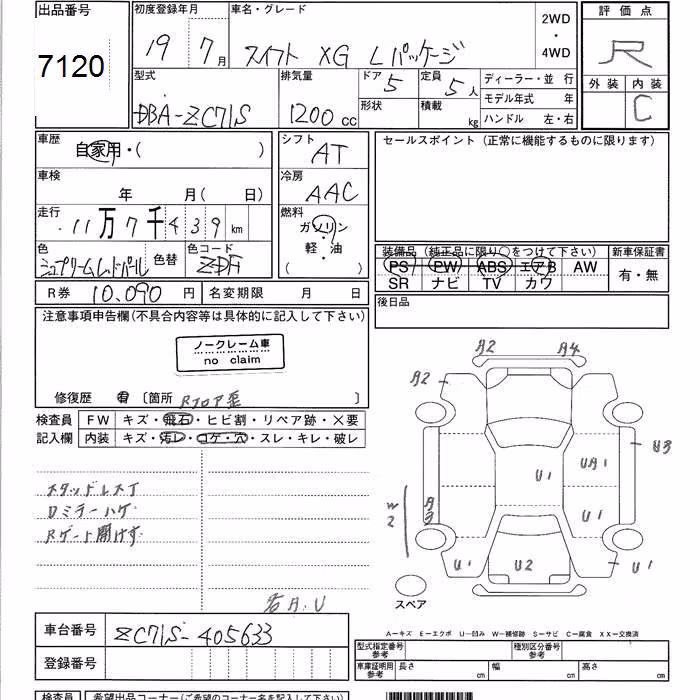 出品番号
7120
初度登録年月
19 7月
車名・グレード
スイフト XG Lパッケージ
2WD
・
4WD
評価点
R
外装 内装
C
型式
DBA-ZC71S
排気量
1200cc
ドア 5
形状
定員 5人
積載 kg
ディーラー・並 行
モデル年式 年
ハンドル 左・右
車歴
自家用・( )
車検
年 月(日)
走行
11万7千439km
色
色替
色コード
シフト
AT
冷房
AAC
燃料
ガソリン
・
軽・油
( )
セールスポイント(正常に機能するものに限ります)
装備品(純正品に限り○をつけて下さい)
PS PW ABS エアB AW
SR ナビ TV カワ
新車保証書
有・無
R券 10,090円
名変期限 月 日
後日品
注意事項申告欄(不具合内容等は具体的に記入して下さい)
ノークレーム車
no claim
修復歴 有 〔箇所 Rフロア歪 〕
検査員
記入欄
FW キズ・飛石・ヒビ割・リペア跡・×要
内装 キズ・汚レ・コゲ・穴・スレ・キレ・破レ
スタッドレス
Dミラーハゲ
Rゲート開けず
A2 A4
A2
U3
UA1
U1
W2
A3
U1
U1 U2 U1
スペア
A-キズ E-エクボ U-凹み W-補修跡 S-サビ C-腐食 XX-交換済
車台番号
ZC71S-405633
登録番号
型式指定番号
参考
種別区分番号
参考
車庫証明用
参考
長さ cm 幅 cm 高さ cm
検査員
希望出品コーナー(ご希望のコーナー名を記入下さい)